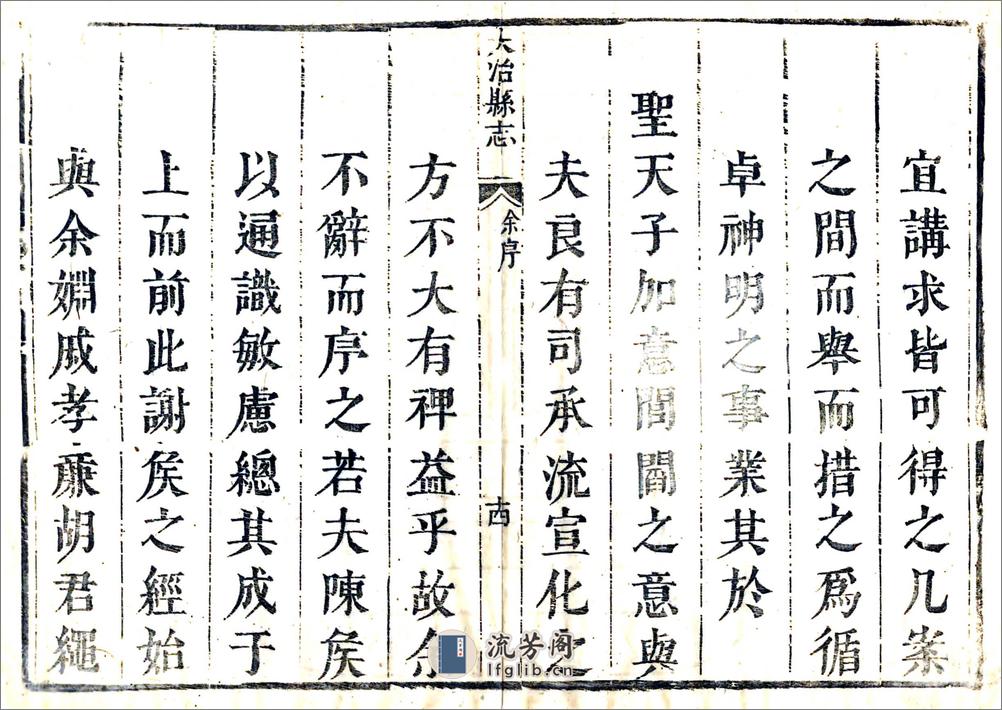 宜講求皆可得之几案
之間而舉而措之爲循
卓神明之事業其於
聖天子加意閭閻之意與
夫良有司承流宣化
大冶縣志
余序
方不大有裨益乎故余
不辭而序之若夫陳侯
以通識敏慮總其成于
上而前此謝侯之經始
與余婣戚孝亷胡君繩
流芳阁
lfglib.cn